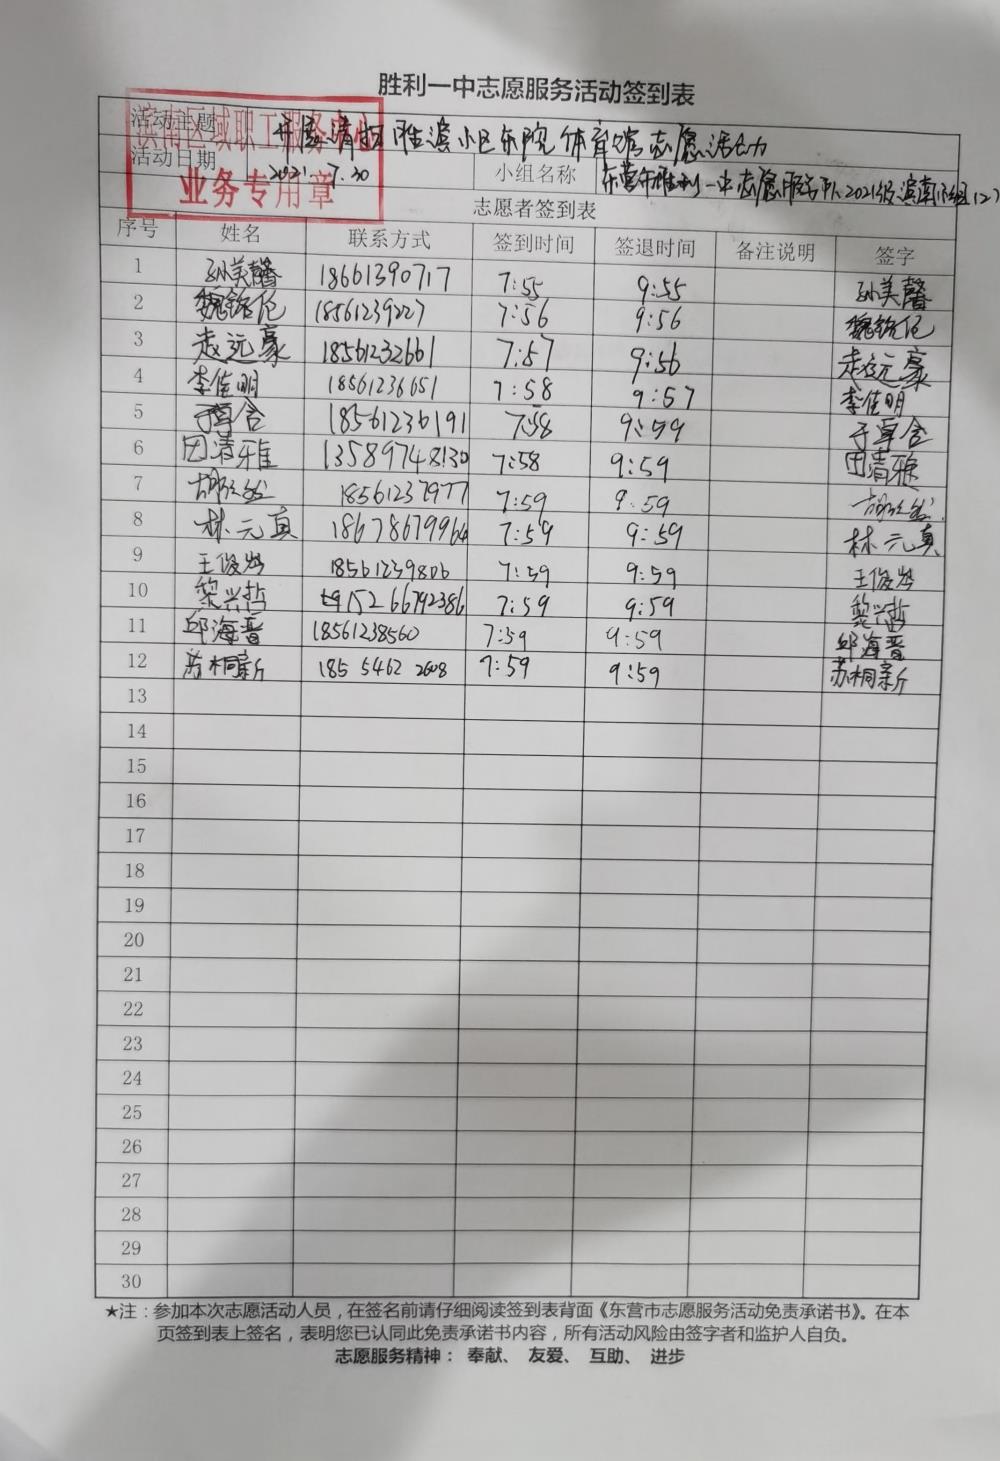 胜利一中志愿服务活动签到表
活动主题 开展清扫胜滨小区东院体育场志愿活动
滨南区域职工服务
活动日期 2021.7.30 小组名称 东营市胜利一中志愿服务队2021级滨南小组(2)
业务专用章
志愿者签到表
序号 姓名 联系方式 签到时间 签退时间 备注说明 签字
1 孙美馨 18661390717 7:55 9:55 孙美馨
2 魏铭伦 18561239227 7:56 9:56 魏铭伦
3 赵远豪 18561232661 7:57 9:56 赵远豪
4 李佳明 18561236651 7:58 9:57 李佳明
5 于尊舍 18561236191 7:58 9:59 于尊舍
6 田清雅 13589748130 7:58 9:59 田清雅
7 18561237977 7:59 9:59
8 林元真 18678679964 7:59 9:59 林元真
9 王俊岑 18561239806 7:59 9:59 王俊岑
10 黎兴哲 15266792386 7:59 9:59 黎兴哲
11 邱海晋 18561238560 7:59 9:59 邱海晋
12 苏桐新 185 5462 2608 7:59 9:59 苏桐新
13
14
15
16
17
18
19
20
21
22
23
24
25
26
27
28
29
30
★注：参加本次志愿活动人员，在签名前请仔细阅读签到表背面《东营市志愿服务活动免责承诺书》。在本
页签到表上签名，表明您已认同此免责承诺书内容，所有活动风险由签字者和监护人自负。
志愿服务精神： 奉献、 友爱、 互助、 进步